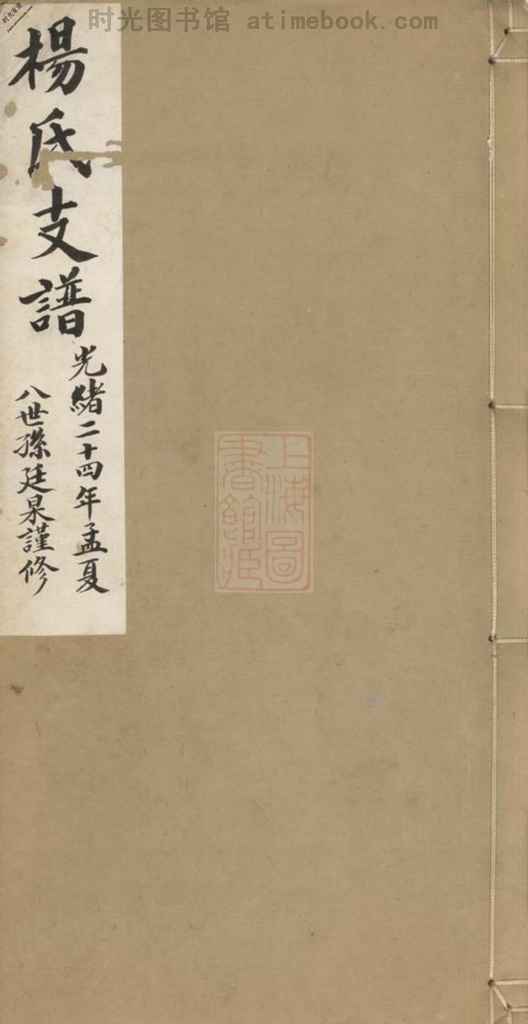 时光图书馆 atimebook.com
楊氏支譜
光緒二十四年孟夏
八世孫廷杲謹修
上海圖
書館藏